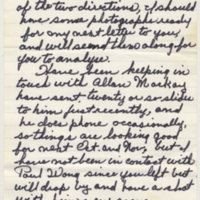 of the two directions, I should
have some photographs ready
for my next letter to you,
and will send them along for
you to analyse.
Have been keeping in
touch with Allan Markay
have sent twenty or so slides
to him just recently, and
he does phone occasionally,
so things are looking good
for next Oct. and Nov, but I
have not been in contact with
Paul Wong since you left but
will drop by and have a shot
with